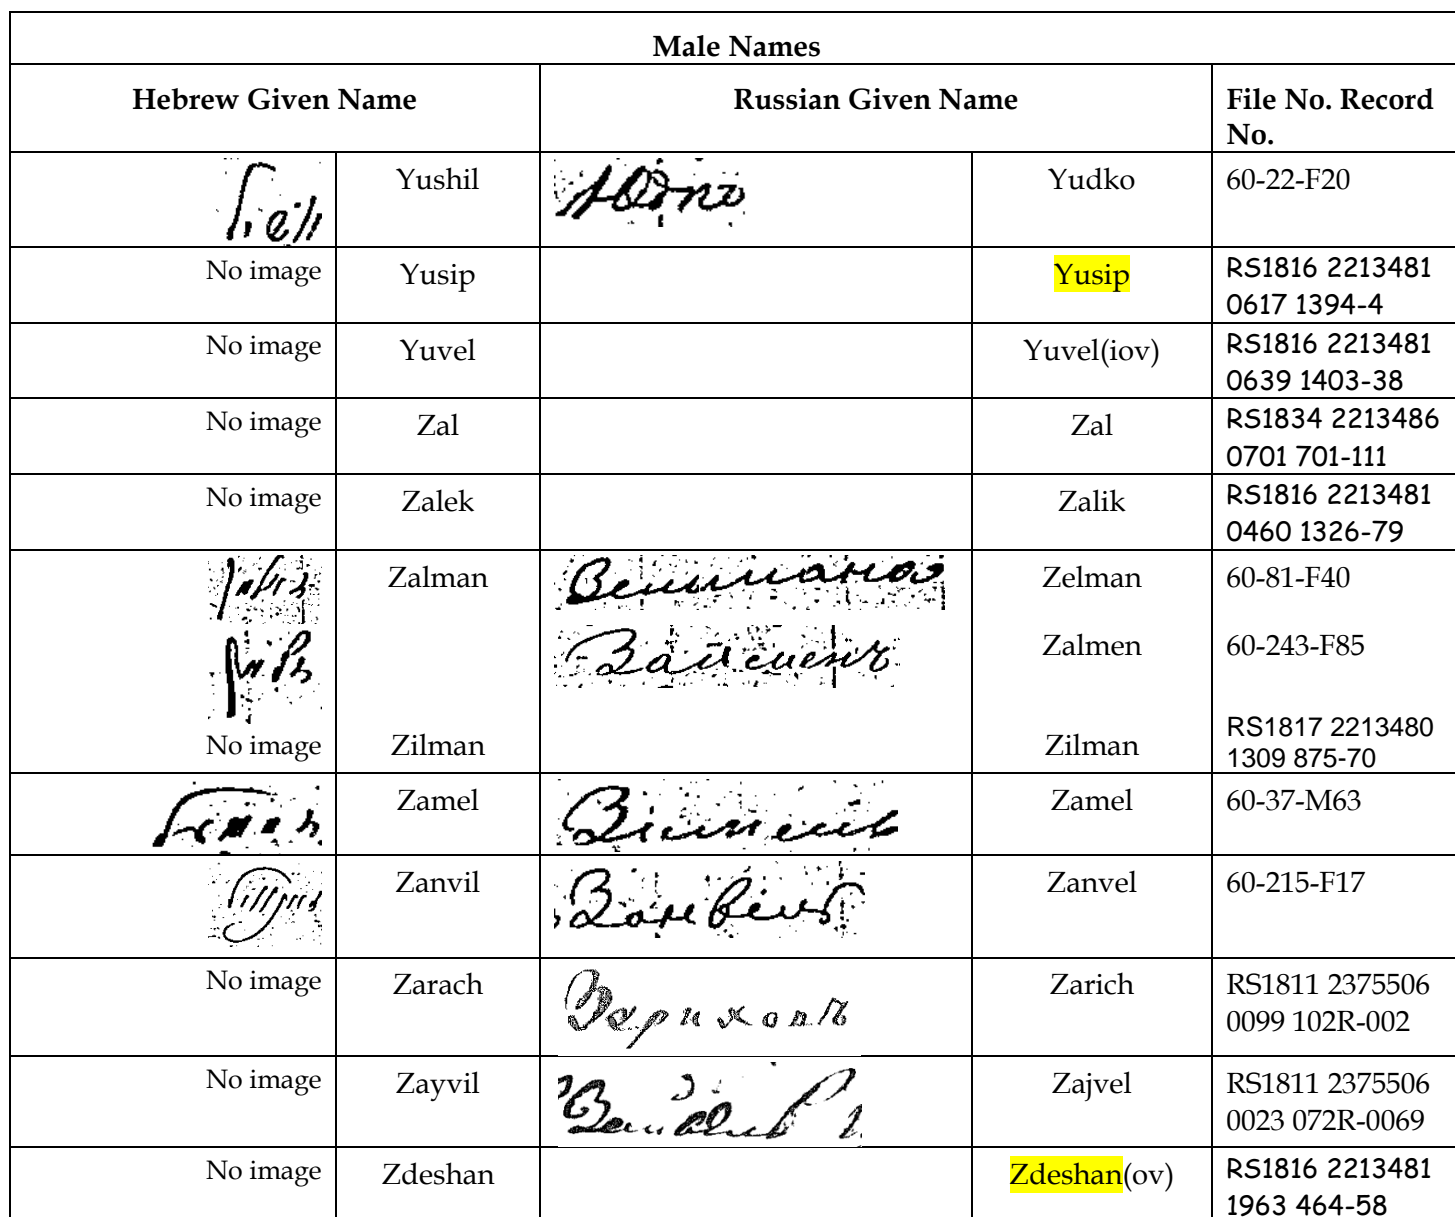 Male Names
Hebrew Given Name Russian Given Name File No. Record
No.
Yushil Yudko 60-22-F20
No image Yusip Yusip RS1816 2213481
0617 1394-4
No image Yuvel Yuvel(iov) RS1816 2213481
0639 1403-38
No image Zal Zal RS1834 2213486
0701 701-111
No image Zalek Zalik RS1816 2213481
0460 1326-79
Zalman Zelman 60-81-F40
Zalmen 60-243-F85
No image Zilman Zilman RS1817 2213480
1309 875-70
Zamel Zamel 60-37-M63
Zanvil Zanvel 60-215-F17
No image Zarach Zarich RS1811 2375506
0099 102R-002
No image Zayvil Zajvel RS1811 2375506
0023 072R-0069
No image Zdeshan Zdeshan(ov) RS1816 2213481
1963 464-58